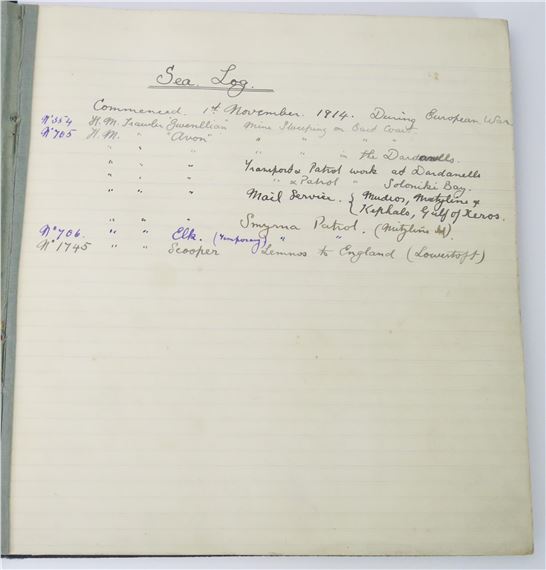 Sea Log.
Commenced 1st November 1914. During European War
No 354 H.M. Trawler Gwenllian Mine Sweeping on East Coast
No 705 H.M. " "Avon" " " " "
" " " " " in the Dardanells.
" " " Transport & Patrol work at Dardanells
" " " " & Patrol " Soloniki Bay.
" " " Mail Service. { Mudros, Mityline &
Kephalo, Gulf of Xeros.
" " " Smyrna Patrol. (Mityline Isd).
No 706. " " Elk. (Temporary) " "
No 1745 " " Scooper Lemnos to England (Lowestoft)